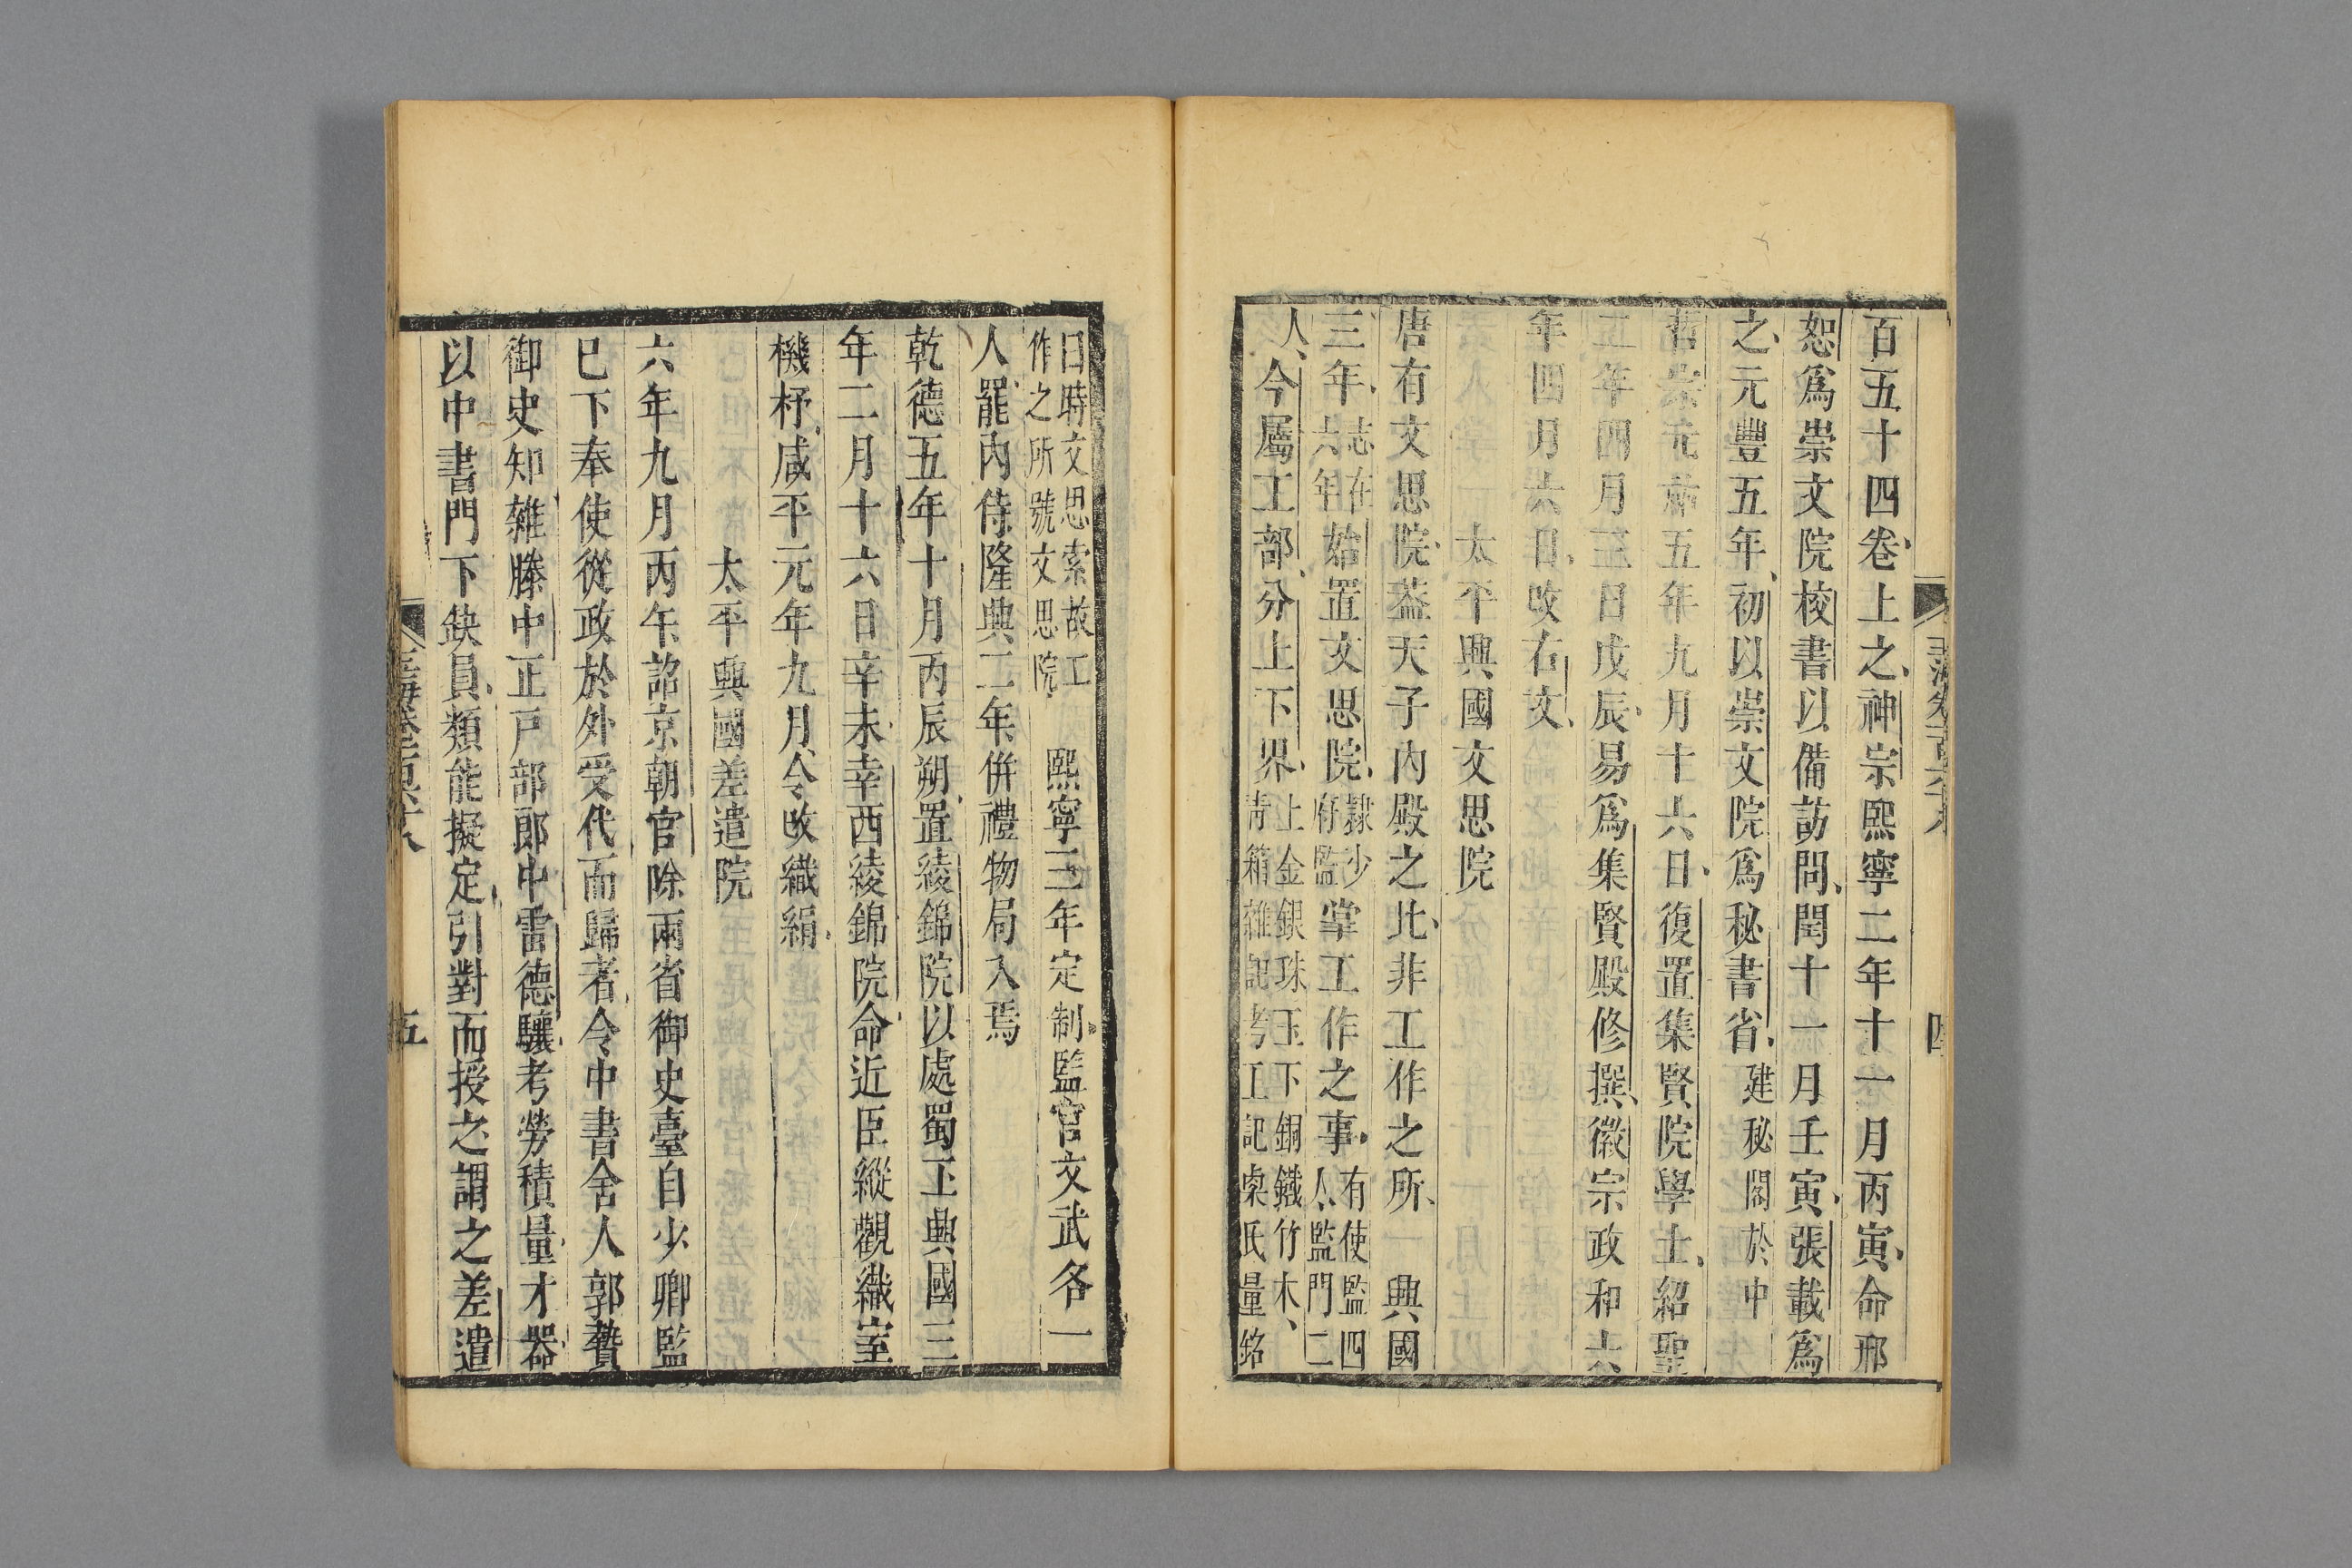 百五十四卷上之神宗熙寧二年十一月丙寅命邢
恕爲崇文院校書以備訪問閏十一月壬寅張載爲
之元豐五年初以崇文院爲秘書省建秘閣於中
哲宗元祐五年九月十六日復置集賢院學士紹聖
二年四月三日戊辰易爲集賢殿修撰徽宗政和六
年四月六日改右文
太平興國文思院
唐有文思院葢天子內殿之比非工作之所 興國
三年志在六年始置文思院隸少府監掌工作之事有使監四人監門二
人今屬工部分上下界上金銀珠玉下銅鐵竹木青箱雜記考工記㮚氏量銘
曰時文思索故工作之所號文思院 熙寧三年定制監官文武各一
人罷內侍隆興二年併禮物局入焉
乾德五年十月丙辰朔置綾錦院以處蜀工興國三
年二月十六日辛未幸西綾錦院命近臣縱觀織室
機杼咸平元年九月令改織絹
太平興國差遣院
六年九月丙午詔京朝官除兩省御史臺自少卿監
已下奉使從政於外受代而歸者令中書舍人郭贄
御史知雜滕中正戸部郎中雷德驤考勞積量才器
以中書門下缺員類能擬定引對而授之謂之差遣
五